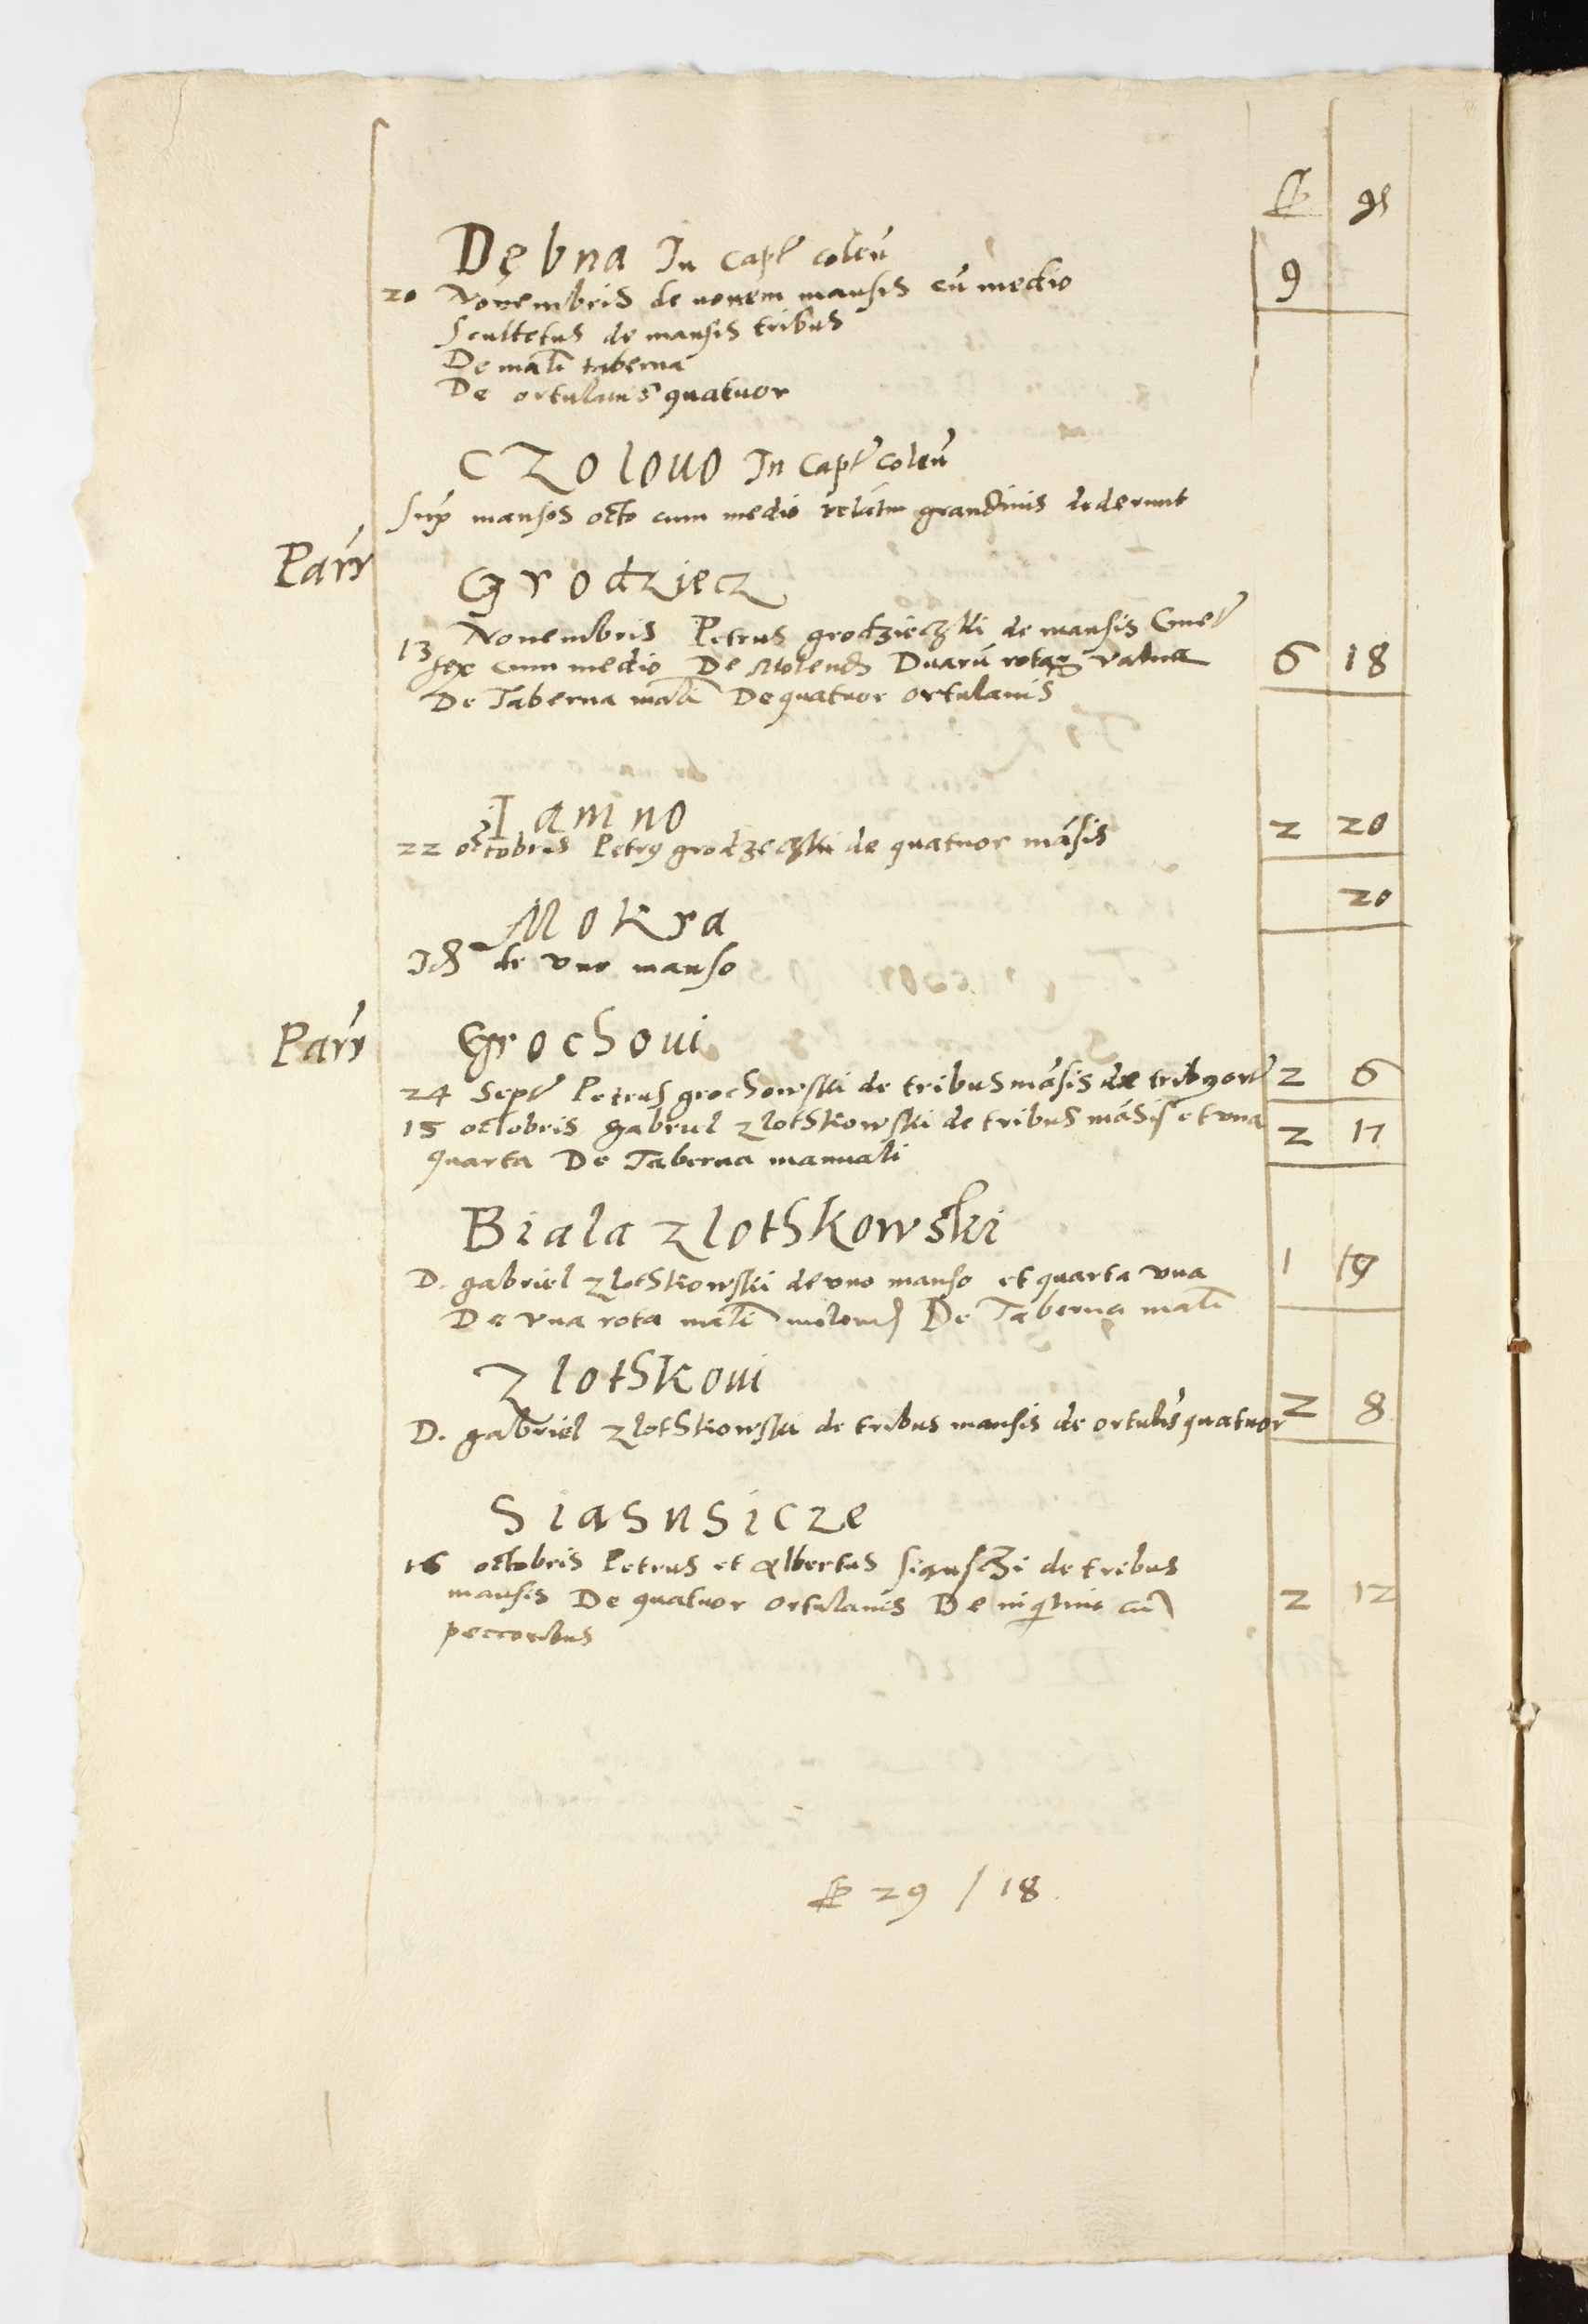 fl gr
Dębna In Capt Coleñ
20 Nouembris de nouem mansis cū medio 9
Scultetus de mansis tribus
De mālī taberna
De ortulanis quatuor
Czolouo In Capt coleñ
Sup mansos octo cum medio grandinis dederunt
Parr Grodziecz
13 Nouembris Petrus grodzieczski de mansis Cmet
sex cum medio De Molend Duarū rotarum 6 18
De Taberna mālī De quatuor ortulanis
Iamno
22 octobris Petrus grodzeczski de quatuor māsis 2 20
Mokra 20
Id de vno manso
Parr Grochoui
24 Sept Petrus grochowski de tribus māsis de tribus ort 2 6
15 octobris gabriel zlothkowski de tribus māsis et vna 2 17
quarta De Taberna manuali
Biala zlothkowski
D. gabriel zlothkowski de vno manso et quarta vna 1 19
De vna rota mālī molend De Taberna mālī
Zlothkoui
D. gabriel zlothkowski de tribus mansis de ortulis quatuor 2 8
Siasnsicze
16 octobris Petrus et Albertus de tribus
mansis De quatuor ortulanis De inqlinis cū 2 12
peccoribus
fl 29 / 18